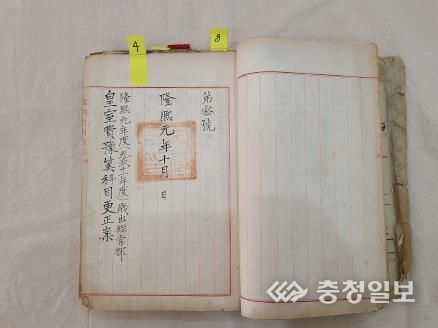 4
8
第參號
隆熙元年十月 日
隆熙元年度(光武十一年度)歲出經常部
皇室費豫算科目更正案
충청일보